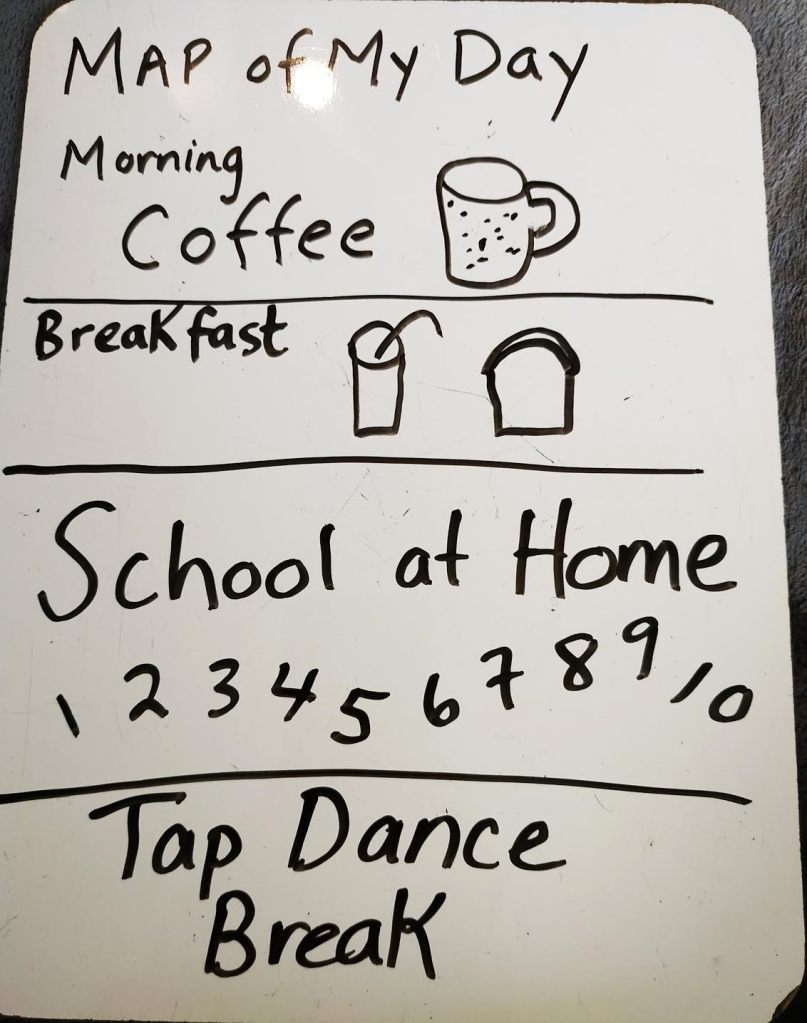 MAP of My Day
Morning
Coffee
Breakfast
School at Home
1 2 3 4 5 6 7 8 9 10
Tap Dance
Break